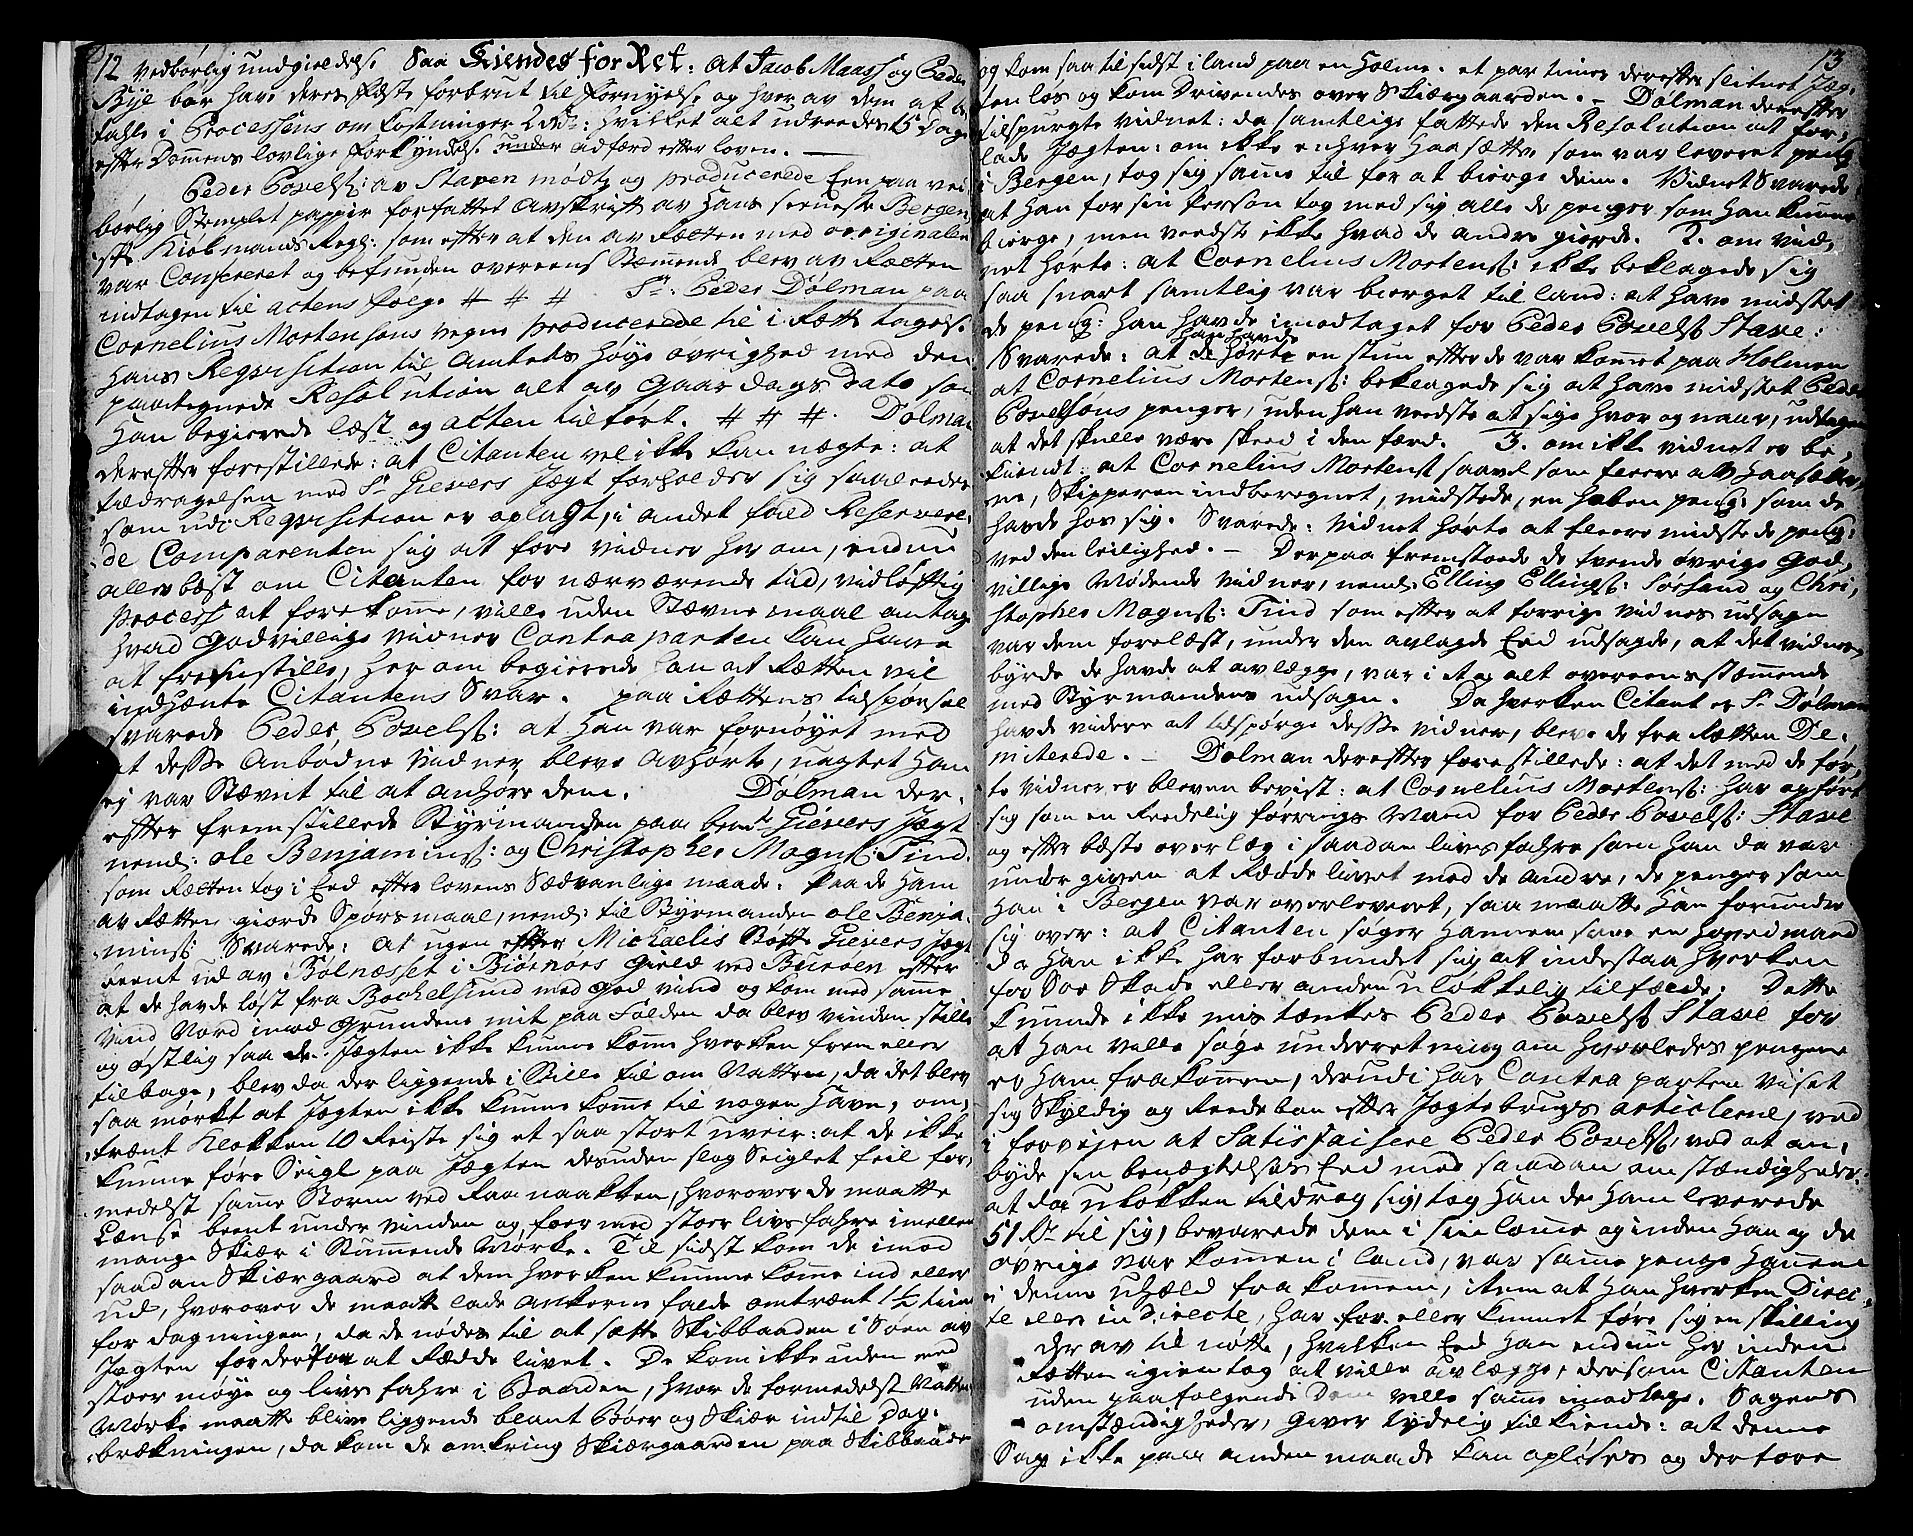 12 vedbørlig undgieldelse. Saa Kiendes for Ret: at Jacob Maass og Peder
Bye bør have deres Fæste forbrut til Fornyelse og hver av dem at be-
tahle i Processens om kostninger 2 rdr: hvilket alt udreedes 15 Dage
efter Dommens lovlige Forkyndelse under adfærd efter loven. —
Peder Povels: av Staven mødte og producerede Een paa ved-
børlig Stemplet pappiir forfattet Avskrift av Hans seeneste Bergen-
ske Kiøbmands Regn: som efter at den av Rætten med originalen
var Confereret og befunden overeens Stæmmende blev av Rætten
indtagen til actens følge # # # Sr. Peder Dølman paa
Cornelius Mortensøns vegne producerede til i Rætte tagelse
Hans Reqvisition til Amtets høye øvrighed med den
paategnede Resolution alt av Gaars dags Dato som
Han begierede læst og acten tilført. # # #. Dølman
derefter forestillede: at Citanten vel ikke kan nægte: at
tildragelsen med Sr. Gievers Jægt forholder sig saaledes
som udi Reqvisition er oplagt, i andet fald Reservere-
de Comparenten sig at føre vidner her om, endnu
allerbæst om Citanten for nærværende tiid, vidløftig
Process at forekomme, ville uden Stævnemaal antage
hvad Godvillige vidner Contraparten kan have
at fremstille, her om begierede han at Rætten vil
indhænte Citantens Svar. paa Rættens tilspørsel
svarede Peder Povels: at Han var fornøyet med
at desse Anbødne vidner bleve Avhørte, uagtet Han
ej var Stævnt til at anhøre dem. Dølman der-
efter fremstillede Styrmanden paa bemte Gievers Jægt
nemb: ole Benjamins: og Christopher Magnus: Tind
som Rætten tog i Eed efter lovens Sædvanlige maade. Paa de Ham
av Rætten giorde Spørsmaal, nemb: til Styrmanden ole Benja-
mins: Svarede: At ugen efter Michaelis Støtte Gievers Jægt
beent ud av Bølnæsset i Biørnørs Gield ved Burøen efter
at de havde løst fra Bochelsund med god vind og kom med samme
vind Nord imod Grundene mit paa Folden da blev vinden stille
og østlig saa de Jægten ikke kunne komme hverken frem eller
tilbage, blev da der liggende i Stille til om Natten, da det blev
saa mørkt at Jægten ikke kunne komme til nogen Havn, om-
trænt klokken 10 Reiste sig et saa stort uveir: at de ikke
kunne føre Seigl paa Jægten desuden slog Seiglet feil for-
medelst samme Storm ved Raanaakken, hvorover de maatte
Lænse beent under vinden og foer med stoer livs fahre imellem
mange Skiær i Stummende Mørke. Til sidst kom de imod
saadan Skiærgaard at dem hverken kunne komme ind eller
ud, hvorover de maatte lade Ankerne falde omtrænt 1½ time
for dagningen, da de nødes til at sætte Skibbaaden i Søen av
Jægten for der paa at Rædde livet. De kom ikke uden med
stoer møye og livs fahre i Baaden, hvor de formedelst Natte
Mørke maatte blive liggende blant Boer og Skiær indtil Dag-
brækningen, da kom de omkring Skiærgaarden paa Skibbaade
13
og kom saa til sidst i land paa en Holme. et par timer derefter slitnet Jæg-
ten løs og kom Drivendes over Skiærgaarden. — Dølman derefter
tilspurgte vidnet: da samtlige fattede den Resolution at for-
lade Jægten: om ikke enhver Haasætte, som var leveret penge
i Bergen, tog sig samme til for at bierge dem. Vidnet Svarede
at Han for sin Person tog med sig alle de penger som han kunne
bierge, men veedste ikke hvad de andre giorde. 2. om vid-
net hørte: at Cornelius Mortens: ikke beklagede sig
saa snart samtlig var bierget til land: at have midstet
de peng: han havde imodtaget for Peder Povels: Stave:
Svarede: at de hørte en stun efter de var kommet paa Holmen
Han havde
at Cornelius Mortens: beklagede sig at have midstet Peder
Povelsøns penger, uden han veedste at sige hvor og naar, udtagen
at det skulle være skeed i den færd. 3. om ikke vidnet er be-
kiendt: at Cornelius Mortens: saavel som fleere av Haasætter-
ne, Skipperen indberegnet, midstede, en haben peng: som de
havde hos sig. Svarede: vidnet hørte at fleere midstede peng:
ved den leilighed. — Derpaa fremstoede de tvende øvrige God-
villige Mødende vidner, neml: Elling Ellings: Sørsand og Chri-
stopher Magns: Tind som efter at forrige vidnes udsagn
var dem forelæst, under den avlagde Eed udsagde, at det vidnes-
byrde de havde at avlægge, var i et og alt overeensstæmmende
med Styrmandens udsagn. Da hverken Citant er Sr. Dølman
havde videre at tilspørge desse vidner, bleve de fra Rætten De-
miterede. — Dølman derefter forestillede: at det med de før-
te vidner er bleven bevist: at Cornelius Mortens: har opført
sig som en Reedelig førrings Mand for Peder Povels: Stave
og efter bæste overlæg i saadan livsfahre som han da var
undergiven at Rædde livet med de andre, de penger som
Han i Bergen var overleveret, saa maatte Han forundre
sig over: at Citanten søger Hannem som en hovedmand
da Han ikke har forbundet sig at indestaa hverken
for Søe Skade eller anden uløkkelig tilfælde. Dette
kunde ikke mistænkes Peder Povels: Stave for
at Han ville søge underretning om hvorledes pengene
er Ham frakommen, derudi har Contra parten viset
sig Skyldig og Reedebon efter Jægtebrugs articlerne, ved
i forvejen at Satisfaisere Peder Povels: ved at an-
byde sin benægtelses Eed med saadan omstændigheder:
at da uløkken tildrog sig, tog Han de Ham leverede
51 Rd. til sig, bevarede dem i sin lomme og inden Han og de
øvrige var kommen i land, var samme penge Hannem
i denne uhæld frakommen, item at Han hverken Direc-
te eller in Directe, har før eller kunnet føre sig en skilling
der av til nøtte, hvilken Eed Han endnu her inden
Rætten igientog at ville avlægge, dersom Citanten
uden paafølgende Dom ville samme imodtage. Sagens
omstændigheder, giver tydelig tilkiende: at denne
Sag ikke paa anden maade kan opløses og derfore